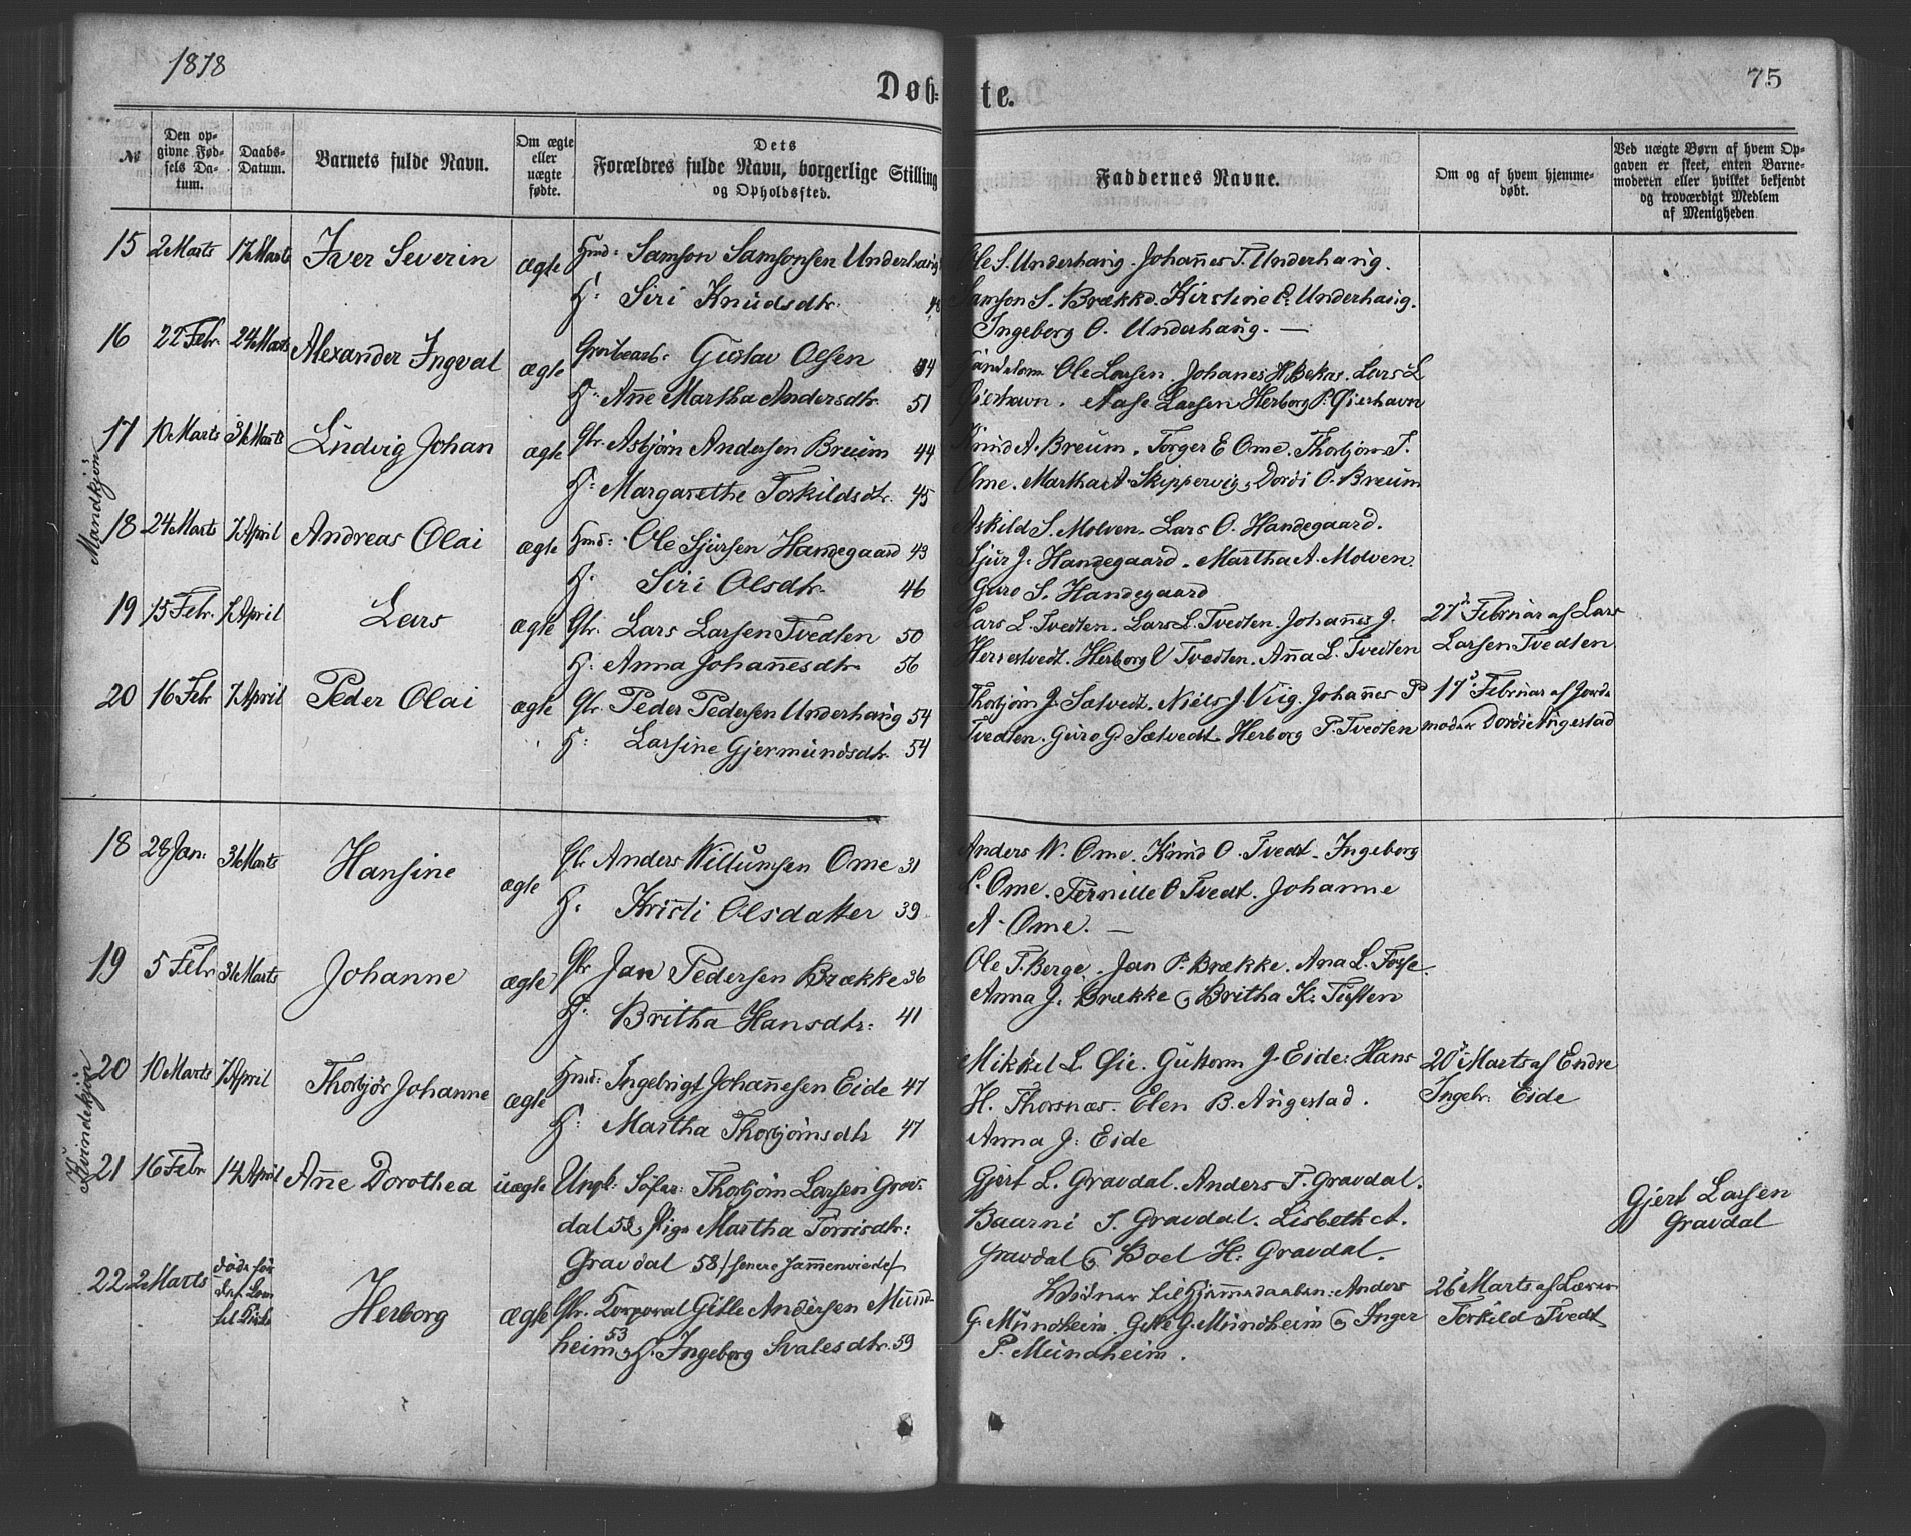 1878
Døb= te.
75
№
Den op-
givne Fød-
sels Da-
tum.
Daabs-
Datum.
Barnets fulde Navn.
Om ægte
eller
uægte
fødte.
Dets
Forældres fulde Navn, borgerlige Stilling
og Opholdssted.
Faddernes Navne.
Om og af hvem hjemme-
døbt.
Ved uægte Børn af hvem Op-
gaven er skeet, enten Barne-
moderen eller hvilket bekjendt
og troværdigt Medlem
af Menigheden
Mandkjøn
15 2 Marts 17 Marts Iver Severin ægte Hmd: Samson Samsonsen Underhaug
H: Siri Knudsdtr.
Ole S. Underhaug. Johannes T. Underhaug.
Samson S. Brække. Kirstine Underhaug.
Ingeborg O. Underhaug. —
16 22 Febr. 24 Marts Alexander Ingval ægte Gustav Olsen 44
H: Anne Martha Andersdtr. 51
Ole Larsen. Johanes H. Bekas. Lars L.
Øierhavn. Aase Larsen Herborg P. Øierhavn
17 10 Marts 31 Marts Ludvig Johan ægte Gbr. Asbjørn Andersen Breum 44
H: Margarethe Torkildsdtr. 45
Knud A. Breum. Torger E Ome. Thorbjørn T.
Ome. Martha A. Skippervig & Dordi O. Breum
18 24 Marts 7 April Andreas Olai ægte Hmd: Ole Sjursen Handegaard 43
H: Siri Olsdtr. 46
Askild S. Molven. Lars O. Handegaard.
Sjur J. Handegaard. Martha A. Molven.
Guro S. Handegaard
19 15 Febr. 7 April Lars ægte Gbr. Lars Larsen Tvedten 50
H: Anna Johannesdtr. 56
Lars L. Tvedten. Lars L. Tvedten. Johannes J.
Herrestvedt. Herborg Tvedten. Anna L. Tvedten
27 Februar af Lars
Larsen Tvedten
20 16 Febr 7 April Peder Olai ægte Gbr. Peder Pedersen Underhaug 54
H: Larsine Gjermundsdtr. 54
Thorbjørn J. Sætvedt. Niels J. Viig. Johannes P
Tvedten. Guro G. Sætvedt. Herborg P. Tvedten
17 Februar af Jorde
moder Dordi Augestad
Kvindekjøn
18 28 Jan: 31 Marts Hansine ægte Gbr Anders Willumsen Ome 31
H. Kristi Olsdatter 39
Anders W. Ome. Knud O. Tvedt. Ingeborg
L. Ome. Pernille O Tvedt. Johanne
A. Ome. —
19 5 Febr 31 Marts Johanne ægte Gbr Jan Pedersen Brække 36
H: Britha Hansdtr: 41
Ole T. Berge. Jan P. Brække. Ana L. Fosse.
Anna J. Brække & Britha K. Tuften
20 10 Marts 7 April Thorbjør Johanne ægte Hmd: Ingebrigt Johannesen Eide 47
H: Martha Thorbjørnsdtr 47
Mikkel L. Øie. Guttorm J. Eide. Hans
H. Thorsnæs. Elen B. Augestad.
Anna J. Eide
20 Marts af Endre
Ingebr. Eide
21 16 Febr 14 April Anne Dorothea uægte Ungk: Søfar: Thorbjørn Larsen Grav-
dal 52 & Pige Martha Torrisdtr:
Gravdal 58 (senere sammenviede)
Gjert L. Gravdal. Anders T. Gravdal.
Baarni S. Gravdal. Lisbeth A.
Gravdal & Boel H. Gravdal.
Gjert Larsen
Gravdal
22 2 Marts døde før
til Herborg ægte Gbr. Korporal Gitle Andersen Mund-
heim 53 & H. Ingeborg Svalesdtr. 59
Vidner til Hjemmedaaben. Anders
G. Mundheim. Gitle G. Mundheim & Inger
P. Mundheim.
26 Marts af Lærer
Torkild Tvedt